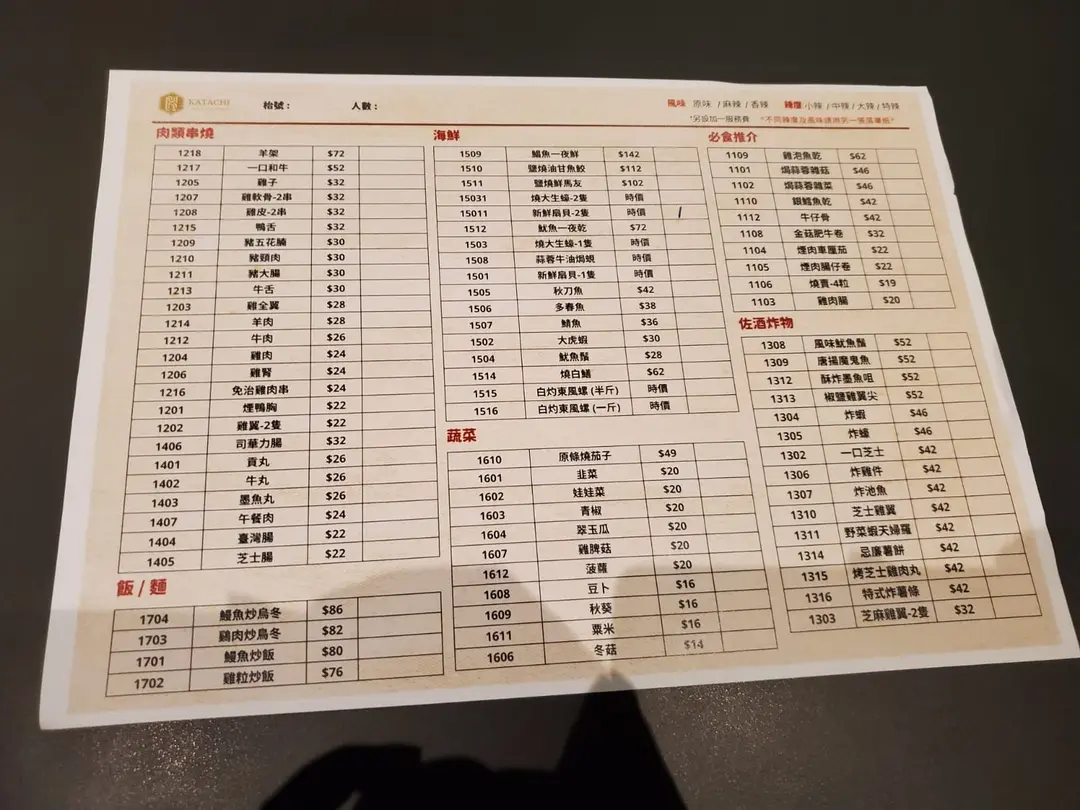 KATACHI
枱號：
人數：
風味 原味 / 麻辣 / 香辣 辣度 小辣 / 中辣 / 大辣 / 特辣
*另設加一服務費 *不同辣度及風味請用另一張落單紙*
肉類串燒
1218 羊架 $72
1217 一口和牛 $52
1205 雞子 $32
1207 雞軟骨-2串 $32
1208 雞皮-2串 $32
1215 鴨舌 $32
1209 豬五花腩 $30
1210 豬頸肉 $30
1211 豬大腸 $30
1213 牛舌 $30
1203 雞全翼 $28
1214 羊肉 $28
1212 牛肉 $26
1204 雞肉 $24
1206 雞腎 $24
1216 免治雞肉串 $24
1201 煙鴨胸 $22
1202 雞翼-2隻 $22
1406 司華力腸 $32
1401 貢丸 $26
1402 牛丸 $26
1403 墨魚丸 $26
1407 午餐肉 $24
1404 臺灣腸 $22
1405 芝士腸 $22
飯 / 麵
1704 鰻魚炒烏冬 $86
1703 鷄肉炒烏冬 $82
1701 鰻魚炒飯 $80
1702 雞粒炒飯 $76
海鮮
1509 鯧魚一夜鮮 $142
1510 鹽燒油甘魚鮫 $112
1511 鹽燒鮮馬友 $102
15031 燒大生蠔-2隻 時價
15011 新鮮扇貝-2隻 時價 /
1512 魷魚一夜乾 $72
1503 燒大生蠔-1隻 時價
1508 蒜蓉牛油焗蜆 時價
1501 新鮮扇貝-1隻 時價
1505 秋刀魚 $42
1506 多春魚 $38
1507 鯖魚 $36
1502 大虎蝦 $30
1504 魷魚鬚 $28
1514 燒白鱔 $62
1515 白灼東風螺 (半斤) 時價
1516 白灼東風螺 (一斤) 時價
蔬菜
1610 原條燒茄子 $49
1601 韭菜 $20
1602 娃娃菜 $20
1603 青椒 $20
1604 翠玉瓜 $20
1607 雞脾菇 $20
1612 菠蘿 $20
1608 豆卜 $16
1609 秋葵 $16
1611 粟米 $16
1606 冬菇 $14
必食推介
1109 雞泡魚乾 $62
1101 焗蒜蓉雜菇 $46
1102 焗蒜蓉雜菜 $46
1110 銀鱈魚乾 $42
1112 牛仔骨 $42
1108 金菇肥牛卷 $32
1104 煙肉車厘茄 $22
1105 煙肉腸仔卷 $22
1106 燒賣-4粒 $19
1103 雞肉腸 $20
佐酒炸物
1308 風味魷魚鬚 $52
1309 唐揚魔鬼魚 $52
1312 酥炸墨魚咀 $52
1313 椒鹽雞翼尖 $52
1304 炸蝦 $46
1305 炸蠔 $46
1302 一口芝士 $42
1306 炸雞件 $42
1307 炸池魚 $42
1310 芝士雞翼 $42
1311 野菜蝦天婦羅 $42
1314 忌廉薯餅 $42
1315 烤芝士雞肉丸 $42
1316 特式炸薯條 $42
1303 芝麻雞翼-2隻 $32